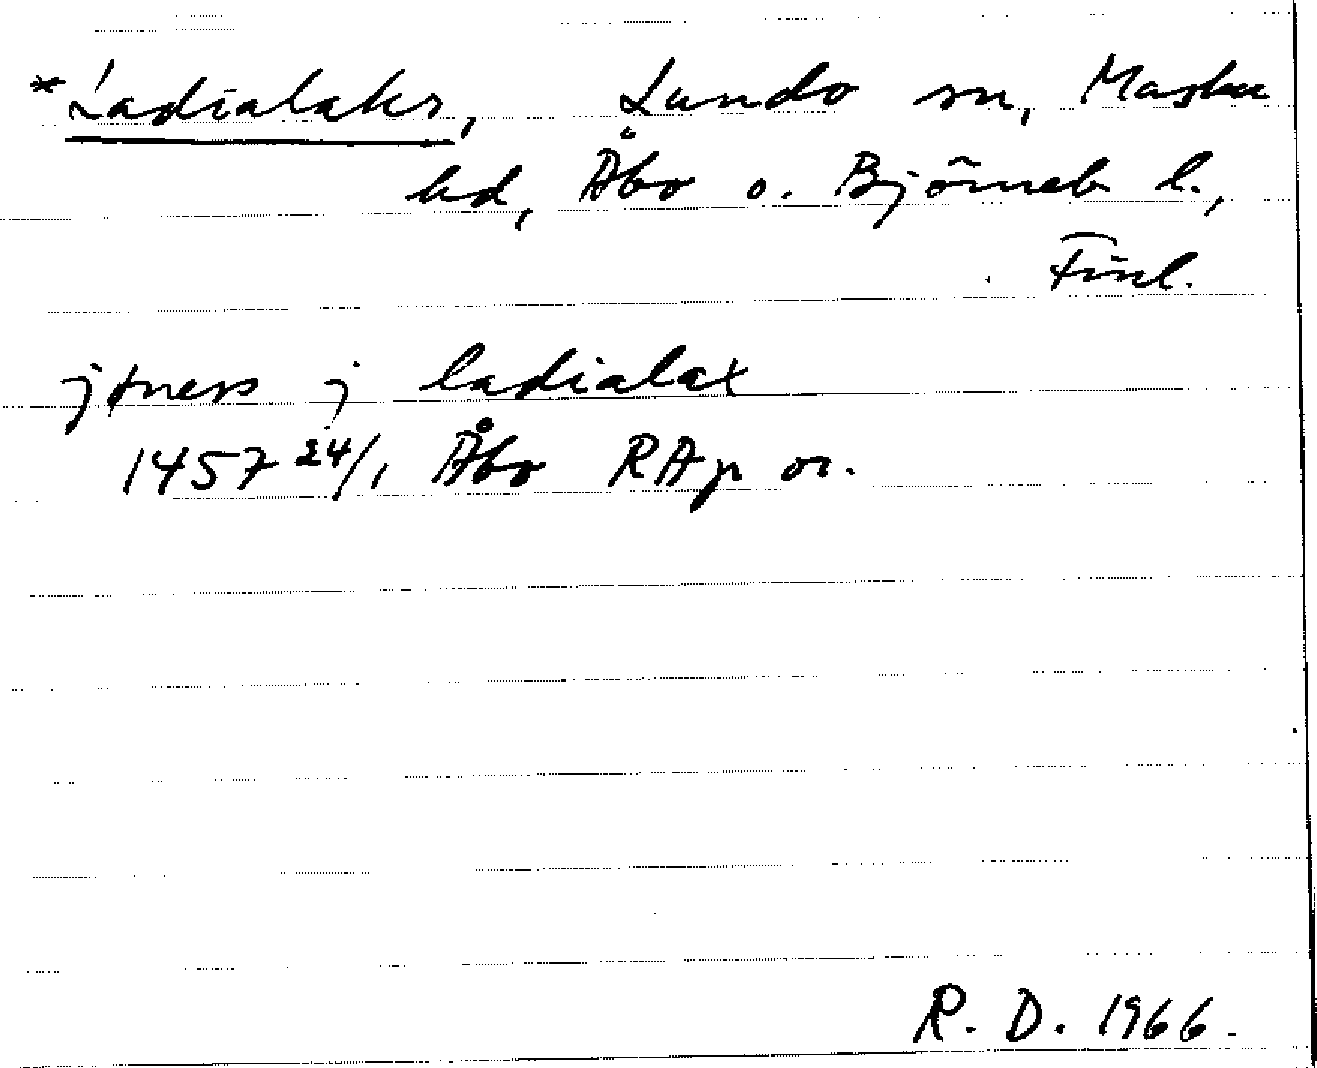 *Ladialaks, Lundo sn, Masku
hd, Åbo o. Björneb l.,
Finl.
jöness j ladialax
1457 24/1 Åbo RAp or.
R. D. 1966.